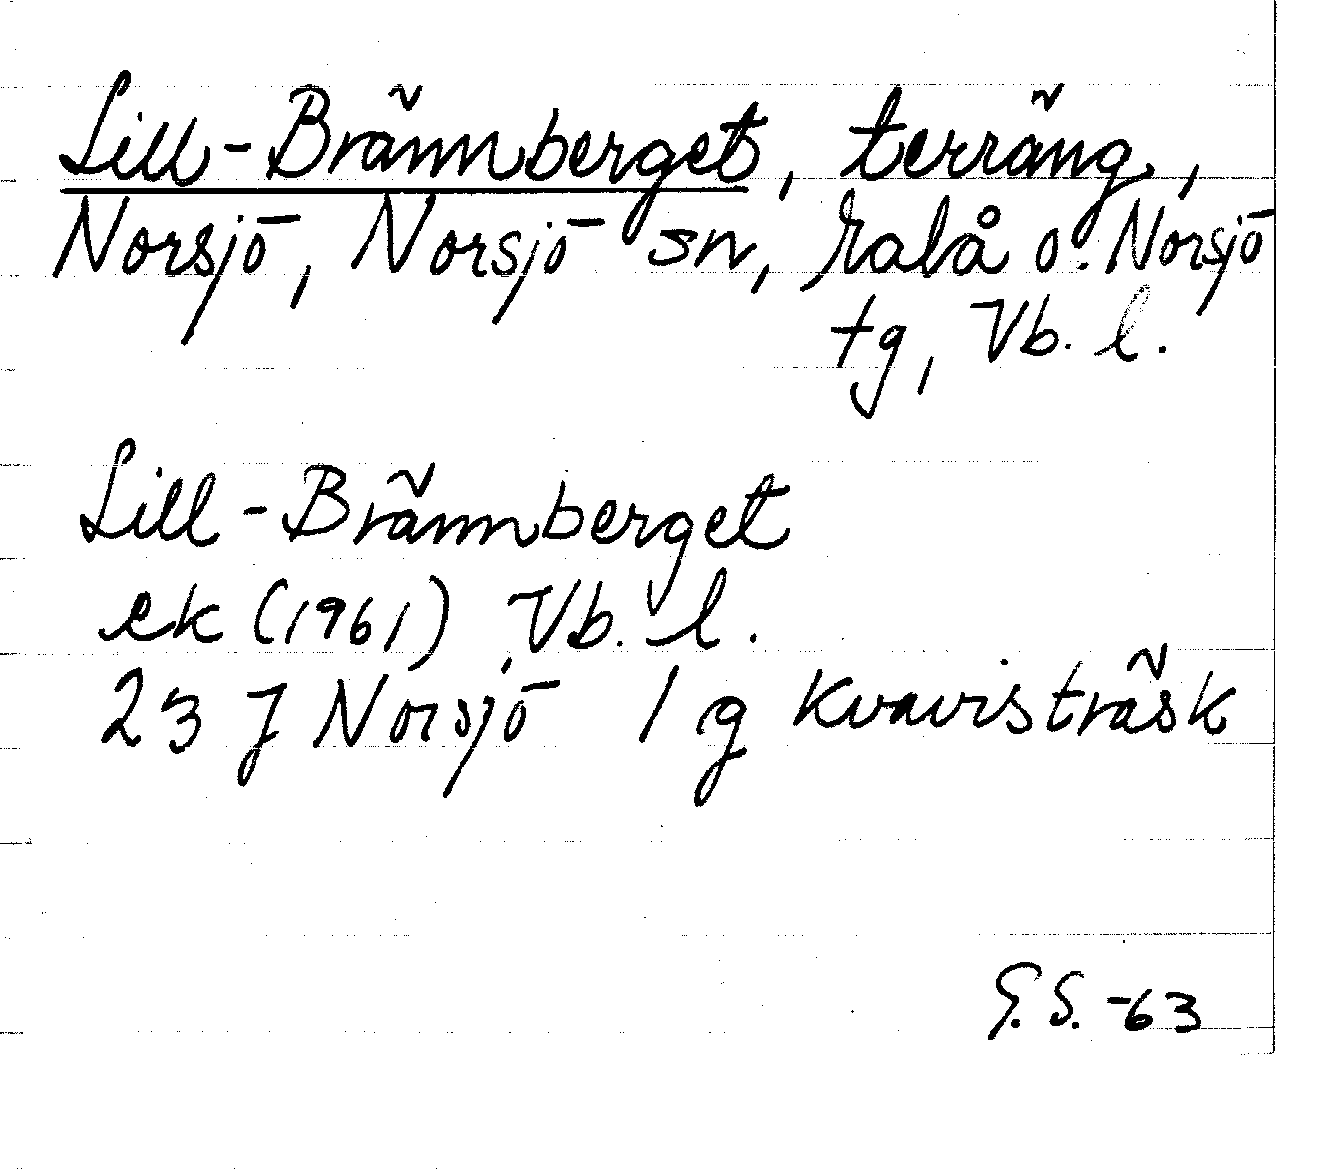 Lill-Brännberget, terräng,
Norsjö, Norsjö sn, Malå o. Norsjö
tg, Vb. l.
Lill-Brännberget
ek (1961) Vb. l.
23 J Norsjö 1 g Kvavisträsk
G.S. -63